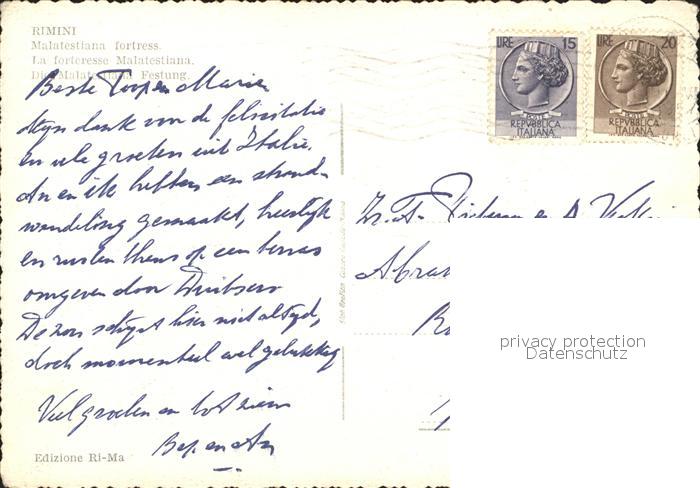 RIMINI
Malatestiana fortress.
La forteresse Malatestiana.
Die Malatestiana Festung.
Beste Toop en Marien
dank voor de felicitatie
en vele groeten uit Italie.
An en ik hebben een strand-
wandeling gemaakt, heerlijk
en rusten thans op een terras
omgeven door Duitsers
De zon schijnt hier niet altijd,
doch momenteel wel gelukkig
Veel groeten en tot ziens
Bep en An
Edizione Ri-Ma
LIRE 15
POSTE
REPVBBLICA
ITALIANA
LIRE 20
POSTE
REPVBBLICA
ITALIANA
privacy protection
Datenschutz